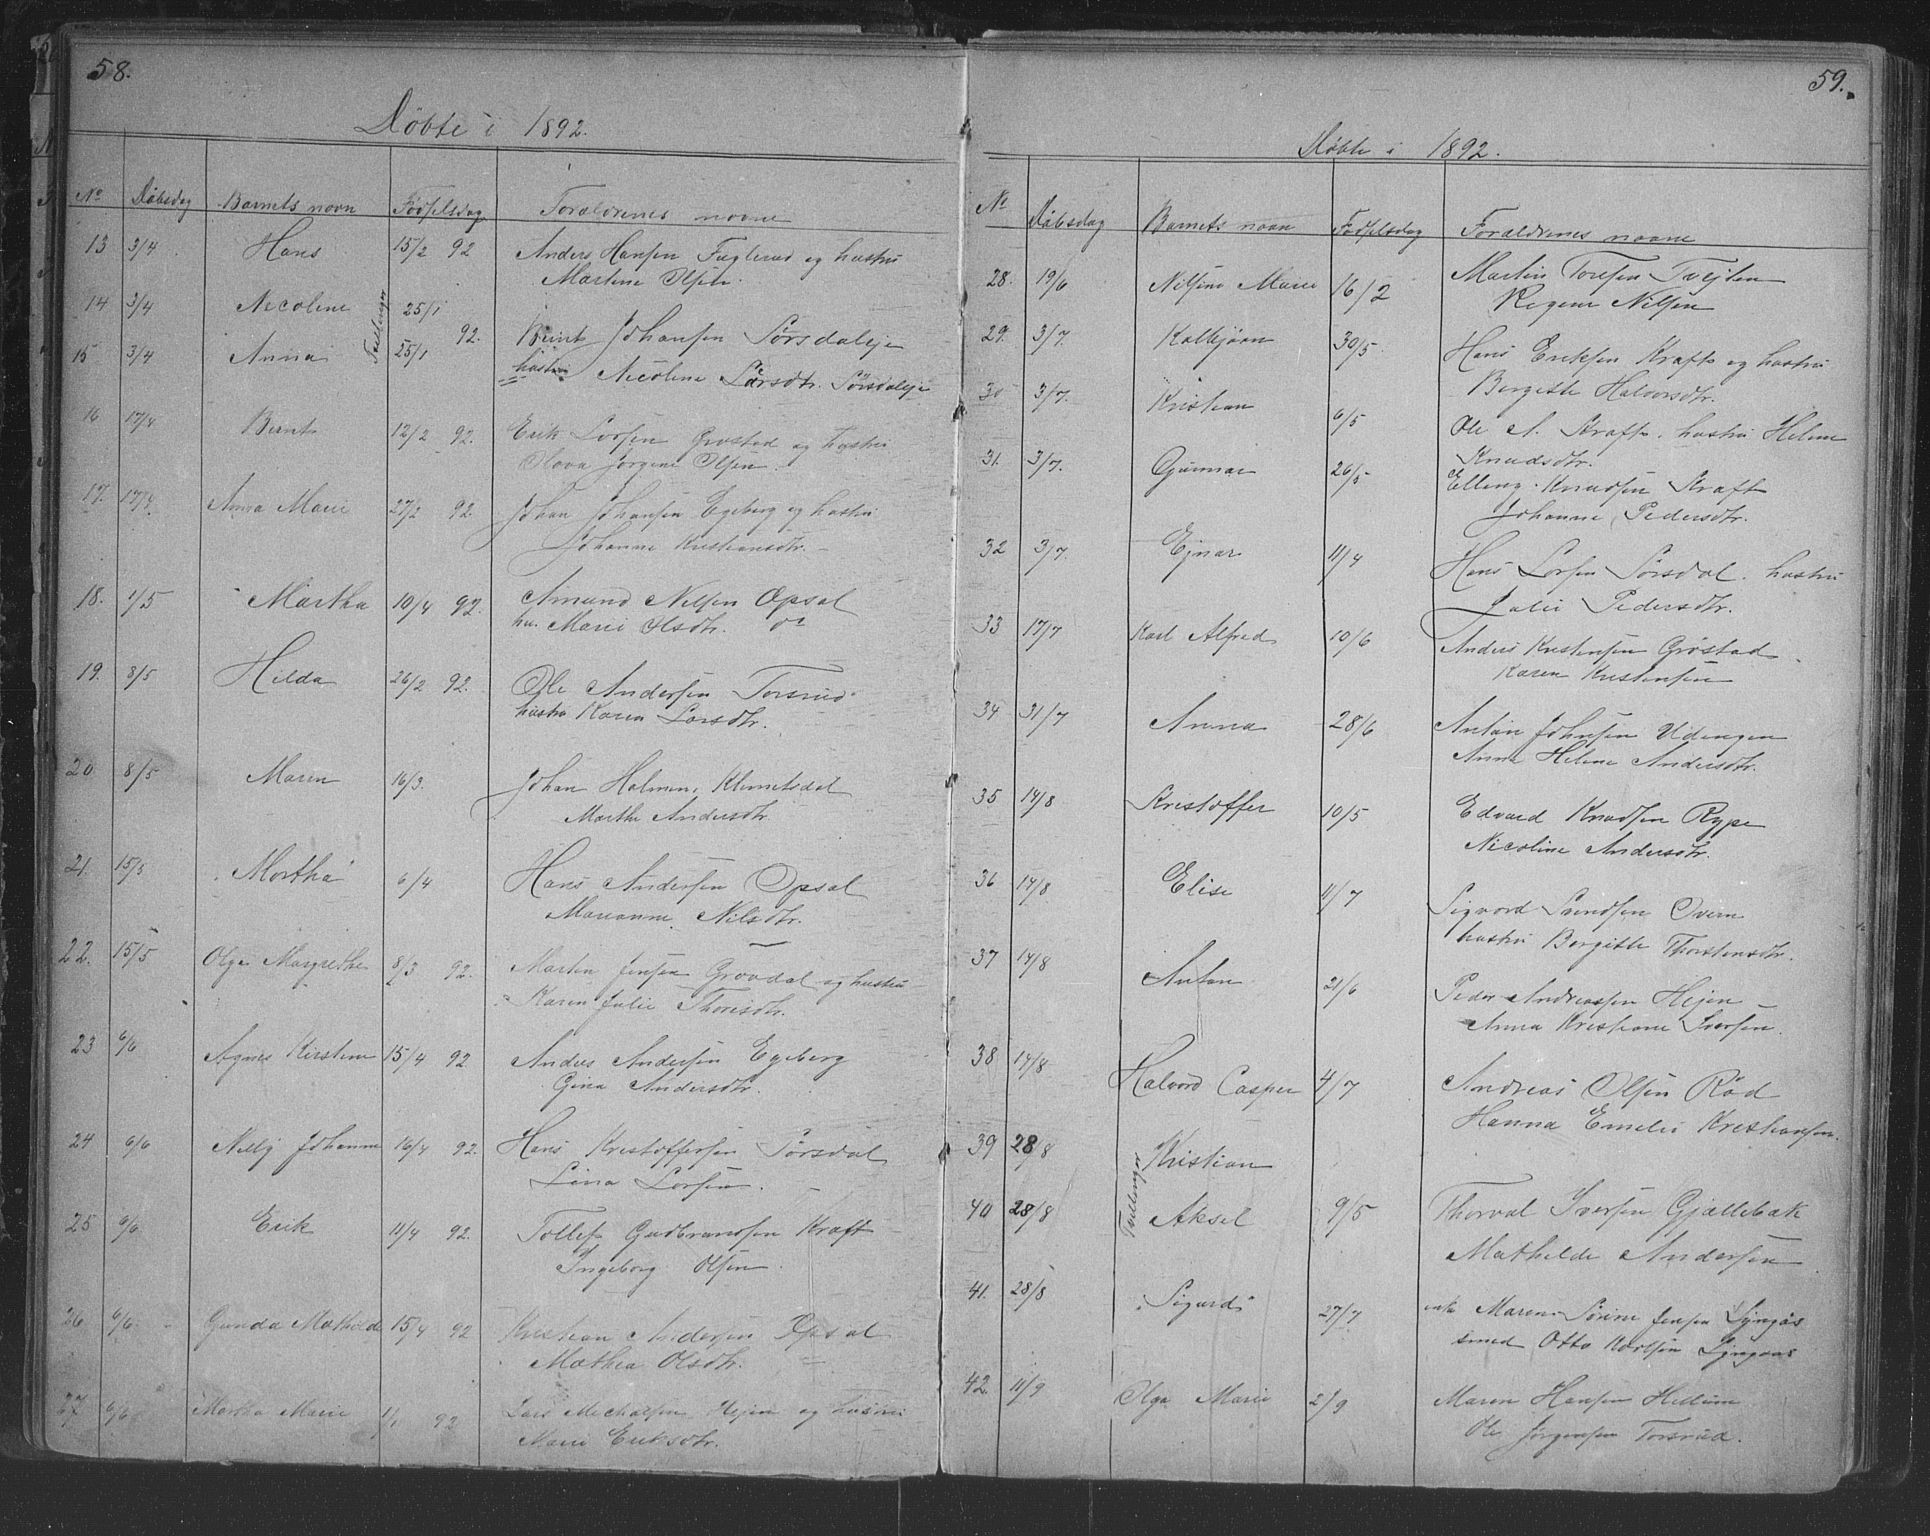 58.
Døbte i 1892.
No Døbsdag Barnets navn Fødselsdag Forældrenes navne
13 3/4 Hans 15/2 92 Anders Hansen Fuglerud og hustru
Martine Olsen.
14 3/4 Nicoline 25/1
Tvillinger
92. Bernt Johansen Sørsdaleje
15 3/4 Anna 25/1
hustru Nicoline Larsdtr. Sørsdaleje
16 17/4 Bernt 12/2 92. Erik Larsen Grøstad og hustru
Olava Jørgine Olsen.
17. 17/4 Anna Marie 27/2 92. Johan Johansen Egeberg og hustru
Johanne Kristiansdtr. -
18. 1/5 Martha 10/4 92. Amund Nilsen Opsal
hu. Marie Olsdtr. do
19. 8/5 Hilda 26/2 92. Ole Andersen Torsrud
hustru Karen Larsdtr.
20 8/5 Maren 16/3. Johan Holmen, Klemetsdal
Marthe Andersdtr.
21. 15/5 Martha 6/4 Hans Andersen Opsal
Marianne Nilsdtr.
22. 15/5 Olga Margrethe 8/3 92. Martin Jensen Grøvdal og hustru
Karen Julie Thorisdtr.
23 6/6 Agnes Kirstine 15/4 92 Anders Andersen Egeberg
Gina Andersdtr.
24 6/6 Nelly Johanne 16/4 92. Hans Kristoffersen Sørsdal
Lina Larsen.
25 6/6 Erik 11/4 92. Tollef Gudbrandsen Kraft
Ingeborg Olsen.
26 6/6. Gunda Mathilde 15/4 92 Kristian Andersen Opsal
Mathea Olsdtr.
27 6/6 Martha Marie 1/1 92 Lars Michalsen Hejen og hustru
Marie Eriksdtr.
59.
Døbte i 1892.
No Døbsdag Barnets navn Fødselsdag Forældrenes navne
28. 19/6 Nilsine Marie 16/2 Martin Toresen Tvejten
Regine Nilsen
29. 3/7. Kolbjørn 30/5. Hans Eriksen Kraft og hustru
Borgitte Halvorsdtr.
30 3/7. Kristian 6/5 Ole A. Kraft. hustru Helene
Knudsdtr.
31. 3/7. Gunnar 26/5 Elling Knudsen Kraft
Johanne Pedersdtr.
32 3/7. Ejnar 11/4 Hans Larsen Sørsdal. hustru
Julie Pedersdtr.
33 17/7 Karl Alfred 10/6 Anders Kristensen Grøstad
Karen Kristensen
34 31/7 Anna 28/6 Anton Johnsen Udengen
Anna Helene Andersdtr.
35 14/8 Kristoffer 10/5 Edvard Knudsen Rype
Nicoline Andersdtr.
36 14/8. Elise 11/7 Sigvard Svendsen Overn
hustru Borgitte Thorstensdtr.
37 14/8 Anton 21/6 Peder Andreassen Hejen
Anna Kristiane Iversen.
38 14/8 Halvord Casper 4/7 Andreas Olsen Rød
Hanna Emelie Kristiansen.
39 28/8 Kristian
Tvillinger
40 28/8 Aksel 9/5 Thorval Iversen Gjellebæk
Mathilde Andersen
41. 28/8 Sigurd 27/7 Maren Sørine Jensen Lyngås
smed Otto Karlsen Lyngaas
42. 11/9 Olga Marie 2/9 Maren Hansen Hellum
Ole Jørgensen Torsrud.